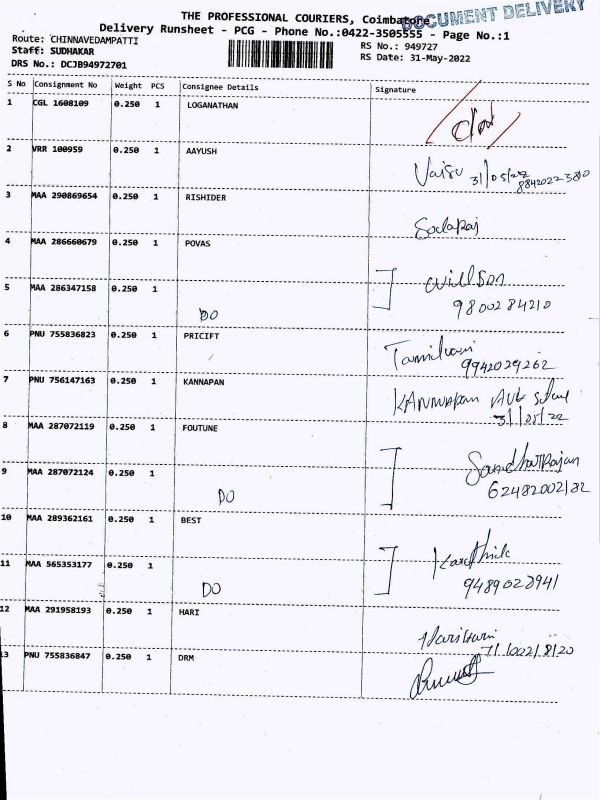 THE PROFESSIONAL COURIERS, Coimbatore
DOCUMENT DELIVERY
Delivery Runsheet - PCG - Phone No.:0422-3505555 - Page No.:1
Route: CHINNAVEDAMPATTI
RS No.: 949727
Staff: SUDHAKAR
RS Date: 31-May-2022
DRS No.: DCJB94972701
S No Consignment No Weight PCS Consignee Details Signature
1 CGL 1608109 0.250 1 LOGANATHAN
2 VRR 100959 0.250 1 AAYUSH
31/05/22
8842022380
3 MAA 290869654 0.250 1 RISHIDER
4 MAA 286660679 0.250 1 POVAS
Willson
5 MAA 286347158 0.250 1 DO
9800284210
6 PNU 755836823 0.250 1 PRICIFT
9942029262
7 PNU 756147163 0.250 1 KANNAPAN
31/05/22
8 MAA 287072119 0.250 1 FOUTUNE
9 MAA 287072124 0.250 1 DO
10 MAA 289362161 0.250 1 BEST
Karthick
11 MAA 565353177 0.250 1 DO
12 MAA 291958193 0.250 1 HARI
Harihari
13 PNU 755836847 0.250 1 DRM